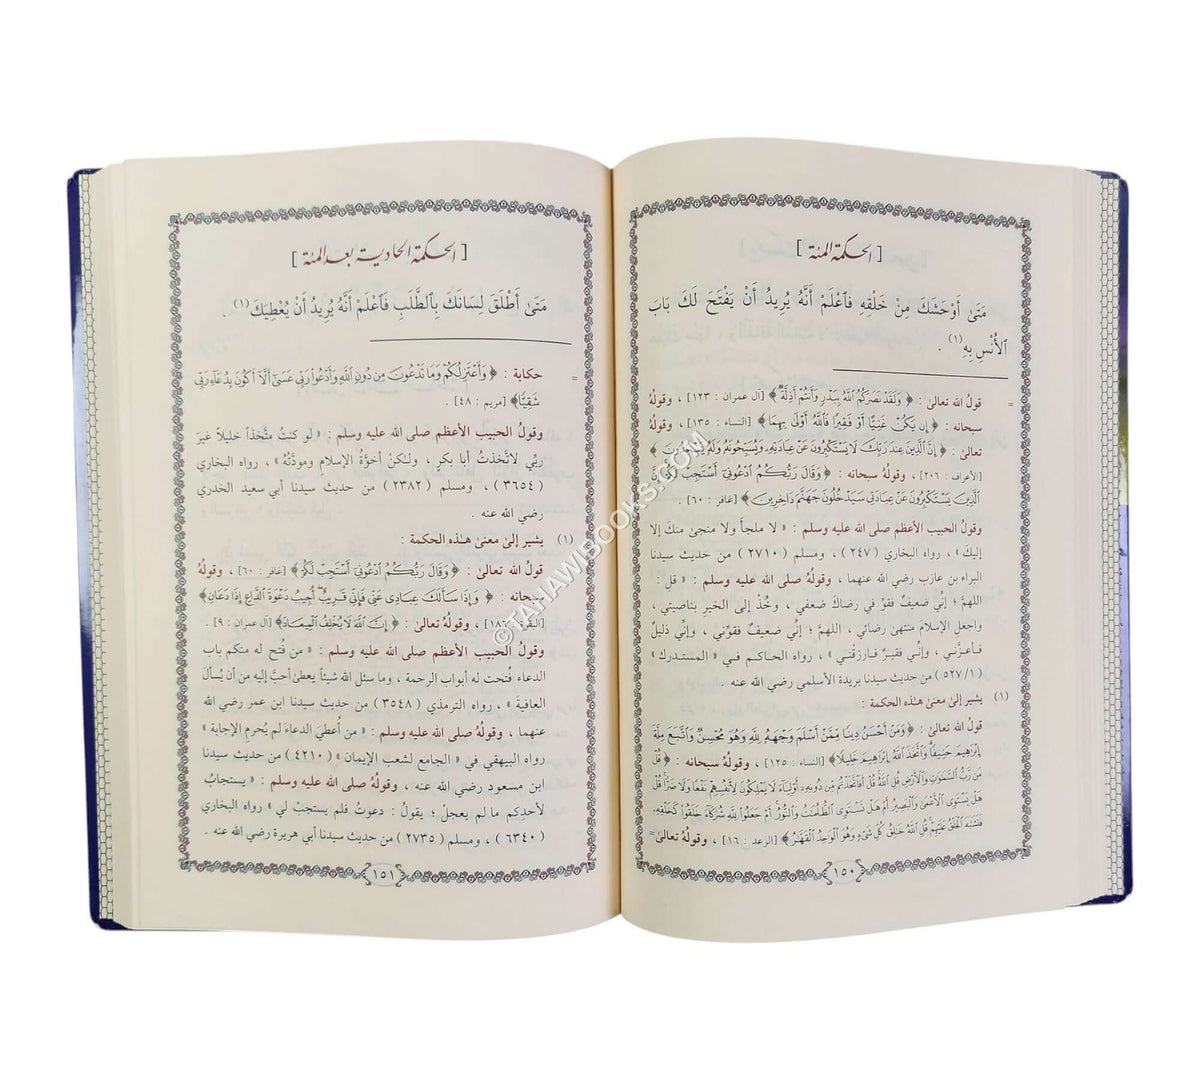 [ الحكمة المئة ]
مَتَىٰ أَوْحَشَكَ مِنْ خَلْقِهِ فَٱعْلَمْ أَنَّهُ يُرِيدُ أَنْ يَفْتَحَ لَكَ بَابَ
ٱلْأُنْسِ بِهِ(١) .
= قولُ الله تعالىٰ : ﴿ وَلَقَدْ نَصَرَكُمُ ٱللَّهُ بِبَدْرٍ وَأَنتُمْ أَذِلَّةٌ ﴾ [آل عمران : ١٢٣] ، وقولُهُ
سبحانه : ﴿ إِن يَكُنْ غَنِيًّا أَوْ فَقِيرًا فَٱللَّهُ أَوْلَىٰ بِهِمَا ﴾ [النساء : ١٣٥] ، وقولُهُ
تعالىٰ : ﴿ إِنَّ ٱلَّذِينَ عِندَ رَبِّكَ لَا يَسْتَكْبِرُونَ عَنْ عِبَادَتِهِۦ وَيُسَبِّحُونَهُۥ وَلَهُۥ يَسْجُدُونَ ﴾
[الأعراف : ٢٠٦] ، وقولُهُ سبحانه : ﴿ وَقَالَ رَبُّكُمُ ٱدْعُونِىٓ أَسْتَجِبْ لَكُمْ إِنَّ
ٱلَّذِينَ يَسْتَكْبِرُونَ عَنْ عِبَادَتِى سَيَدْخُلُونَ جَهَنَّمَ دَاخِرِينَ ﴾ [غافر : ٦٠] .
وقولُ الحبيب الأعظم صلى الله عليه وسلم : « لا ملجأَ ولا منجىٰ منكَ إلا
إليكَ » ، رواه البخاري ( ٢٤٧ ) ، ومسلم ( ٢٧١٠ ) من حديث سيدنا
البراء بن عازب رضي الله عنهما ، وقولُهُ صلى الله عليه وسلم : « قل :
اللهمَّ ؛ إنِّي ضعيفٌ فقوِّ في رضاكَ ضعفي ، وخُذْ إلى الخيرِ بناصيتي ،
واجعلِ الإسلامَ منتهىٰ رضائي ، اللهمَّ ؛ إنِّي ضعيفٌ فقوِّني ، وإنِّي ذليلٌ
فأعزَّني ، وإنِّي فقيرٌ فارزقْني » ، رواه الحاكم في « المستدرك »
( ٥٢٧/١ ) من حديث سيدنا بريدة الأسلمي رضي الله عنه .
(١) يشير إلىٰ معنىٰ هـٰذه الحكمة :
قولُ الله تعالىٰ : ﴿ وَمَنْ أَحْسَنُ دِينًا مِّمَّنْ أَسْلَمَ وَجْهَهُ لِلَّهِ وَهُوَ مُحْسِنٌ وَٱتَّبَعَ مِلَّةَ
إِبْرَٰهِيمَ حَنِيفًا وَٱتَّخَذَ ٱللَّهُ إِبْرَٰهِيمَ خَلِيلًا ﴾ [النساء : ١٢٥] ، وقولُهُ سبحانه : ﴿ قُلْ
مَن رَّبُّ ٱلسَّمَٰوَٰتِ وَٱلْأَرْضِ قُلِ ٱللَّهُ قُلْ أَفَٱتَّخَذْتُم مِّن دُونِهِۦٓ أَوْلِيَآءَ لَا يَمْلِكُونَ لِأَنفُسِهِمْ نَفْعًا وَلَا ضَرًّا قُلْ
هَلْ يَسْتَوِى ٱلْأَعْمَىٰ وَٱلْبَصِيرُ أَمْ هَلْ تَسْتَوِى ٱلظُّلُمَٰتُ وَٱلنُّورُ أَمْ جَعَلُوا۟ لِلَّهِ شُرَكَآءَ خَلَقُوا۟ كَخَلْقِهِۦ
فَتَشَٰبَهَ ٱلْخَلْقُ عَلَيْهِمْ قُلِ ٱللَّهُ خَٰلِقُ كُلِّ شَىْءٍ وَهُوَ ٱلْوَٰحِدُ ٱلْقَهَّٰرُ ﴾ [الرعد : ١٦] ، وقولُهُ تعالىٰ =
١٥٠
[ الحكمة الحادية بعد المئة ]
مَتَىٰ أَطْلَقَ لِسَانَكَ بِٱلطَّلَبِ فَٱعْلَمْ أَنَّهُ يُرِيدُ أَنْ يُعْطِيَكَ(١) .
= حكاية : ﴿ وَأَعْتَزِلُكُمْ وَمَا تَدْعُونَ مِن دُونِ ٱللَّهِ وَأَدْعُوا۟ رَبِّى عَسَىٰٓ أَلَّآ أَكُونَ بِدُعَآءِ رَبِّى
شَقِيًّا ﴾ [مريم : ٤٨] .
وقولُ الحبيب الأعظم صلى الله عليه وسلم : « لو كنتُ متَّخذاً خليلاً غيرَ
ربِّي لاتَّخذتُ أبا بكرٍ ، ولـٰكنْ أخوَّةُ الإسلامِ ومودَّتُهُ » ، رواه البخاري
( ٣٦٥٤ ) ، ومسلم ( ٢٣٨٢ ) من حديث سيدنا أبي سعيد الخدري
رضي الله عنه .
(١) يشير إلىٰ معنىٰ هـٰذه الحكمة :
قولُ الله تعالىٰ : ﴿ وَقَالَ رَبُّكُمُ ٱدْعُونِىٓ أَسْتَجِبْ لَكُمْ ﴾ [غافر : ٦٠] ، وقولُهُ
سبحانه : ﴿ وَإِذَا سَأَلَكَ عِبَادِى عَنِّى فَإِنِّى قَرِيبٌ أُجِيبُ دَعْوَةَ ٱلدَّاعِ إِذَا دَعَانِ ﴾
[البقرة : ١٨٦] ، وقولُهُ تعالىٰ : ﴿ إِنَّ ٱللَّهَ لَا يُخْلِفُ ٱلْمِيعَادَ ﴾ [آل عمران : ٩] .
وقولُ الحبيب الأعظم صلى الله عليه وسلم : « من فُتحَ له منكم باب
الدعاء فُتحت له أبواب الرحمة ، وما سئل الله شيئاً يعطىٰ أحبَّ إليه من أن يُسألَ
العافيةَ » ، رواه الترمذي ( ٣٥٤٨ ) من حديث سيدنا ابن عمر رضي الله
عنهما ، وقولُهُ صلى الله عليه وسلم : « من أُعطيَ الدعاءَ لم يُحرمِ الإجابة »
رواه البيهقي في « الجامع لشعب الإيمان » ( ٤٢١٠ ) من حديث سيدنا
ابن مسعود رضي الله عنه ، وقولُهُ صلى الله عليه وسلم : « يستجابُ
لأحدِكم ما لم يعجلْ ؛ يقولُ : دعوتُ فلم يستجبْ لي » رواه البخاري
( ٦٣٤٠ ) ، ومسلم ( ٢٧٣٥ ) من حديث سيدنا أبي هريرة رضي الله عنه .
١٥١
©TAHAWIBOOKS.COM